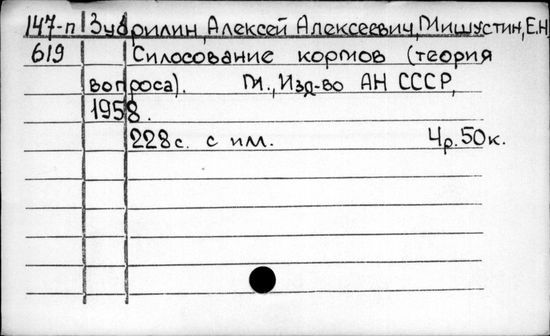 147-п Зубрилин, Алексей Алексеевич, Мишустин, Е.Н
619 Силосование кормов (теория
вопроса). М., Изд-во АН СССР,
1958.
228с. с илл. 4р.50к.